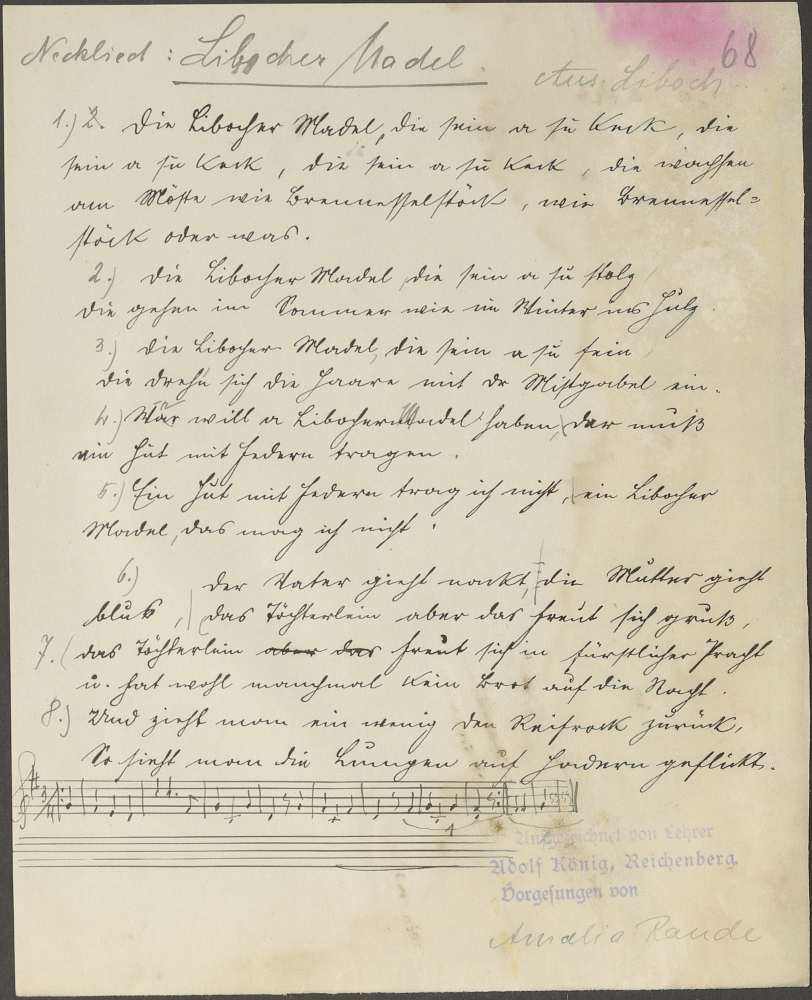 Necklied: Libocher Madel.
68
Aus Liboch
1.) Die Libocher Madel, die sein a su keck, die
sein a su keck, die sein a su keck, die wachsen
am Möste wie Brennesselstöck, wie Brennessel=
stöck oder was.
2.) Die Libocher Madel, die sein a su stolz
die gehen im Sommer wie im Winter ins Hulz.
3.) Die Libocher Madel, die sein a su fein
die drehn sich die Haare mit dr Mistgabel ein.
4.) Wär will a Libocher Madel haben, dar muß
ein Hut mit Federn tragen.
5.) Ein Hut mit Federn trag ich nicht, ein Libocher
Madel, das mag ich nicht.
6.) Der Vater gieht nackt, die Mutter gieht
bluß, das Töchterlein aber das freut sich gruß,
7. das Töchterlein aber das freut sich in fürstlicher Pracht
u. hat wohl manchmal kein Brot auf die Nacht.
8.) Und zieht man ein wenig den Reifrock zurück,
So sieht man die Lumpen auf Hadern geflickt.
Aufgezeichnet von Lehrer
Adolf König, Reichenberg.
Vorgesungen von
Amalia Rande